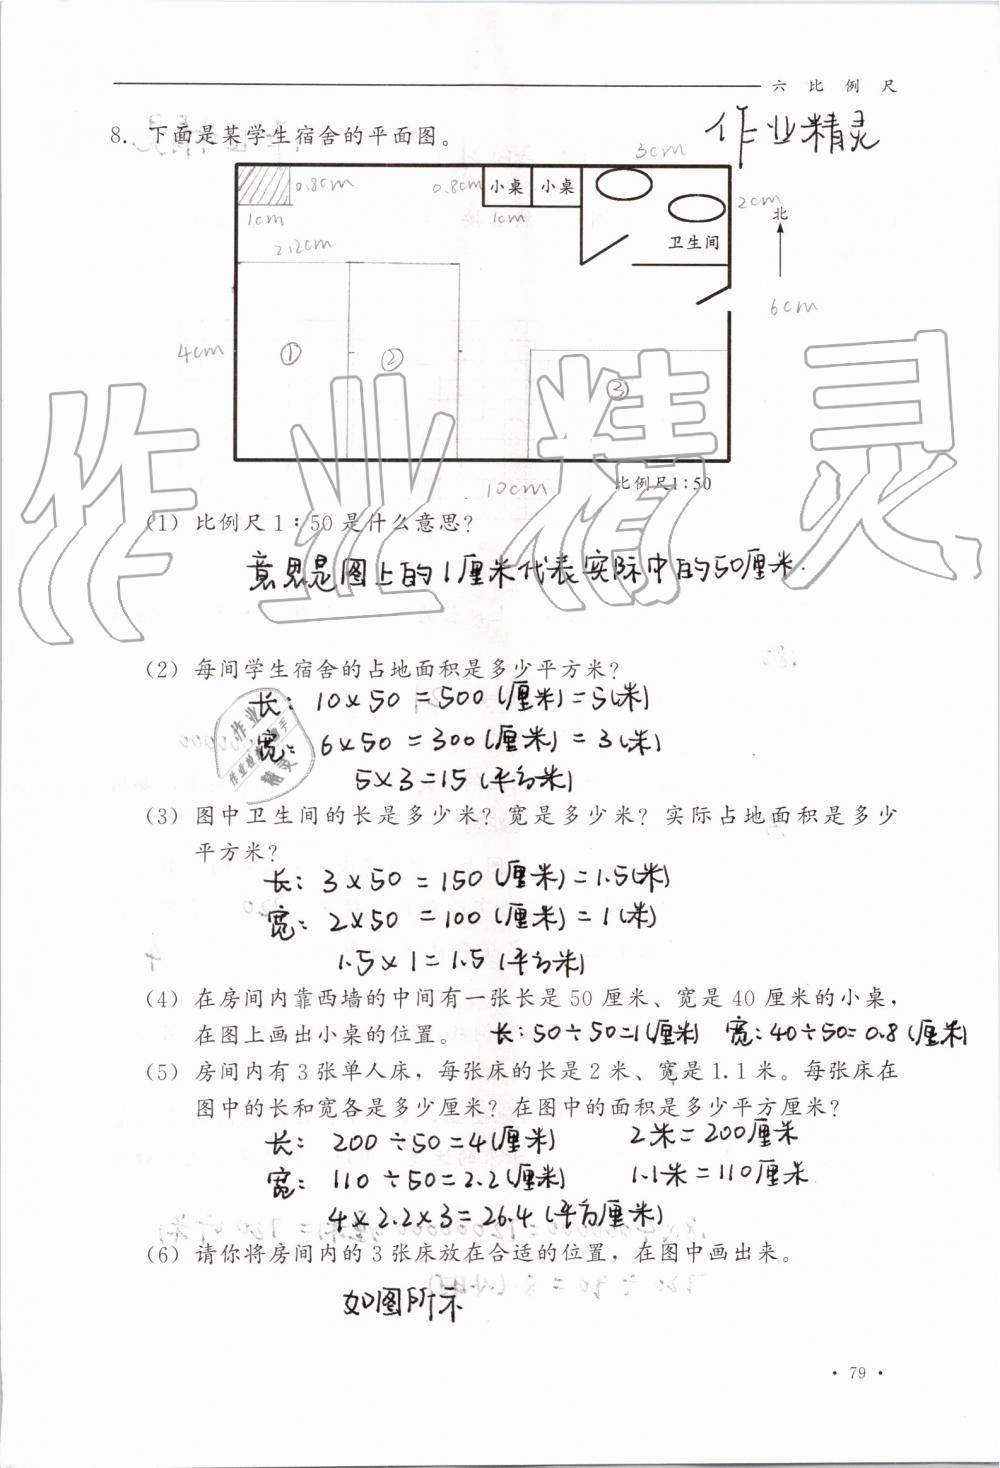 六 比 例 尺
8. 下面是某学生宿舍的平面图。
作业精灵
3cm
0.8cm
0.8cm
小桌 小桌
2cm
1cm
1cm
北
2.2cm
卫生间
6cm
4cm
①
②
③
10cm
比例尺1∶50
作业精灵
(1) 比例尺1∶50是什么意思?
意思是图上的1厘米代表实际中的50厘米.
(2) 每间学生宿舍的占地面积是多少平方米?
长: 10×50=500(厘米)=5(米)
宽: 6×50=300(厘米)=3(米)
5×3=15(平方米)
作业
作业检查小助手
精灵
(3) 图中卫生间的长是多少米? 宽是多少米? 实际占地面积是多少
平方米?
长: 3×50=150(厘米)=1.5(米)
宽: 2×50=100(厘米)=1(米)
1.5×1=1.5(平方米)
(4) 在房间内靠西墙的中间有一张长是50厘米、宽是40厘米的小桌,
在图上画出小桌的位置。 长:50÷50=1(厘米) 宽:40÷50=0.8(厘米)
(5) 房间内有3张单人床, 每张床的长是2米、宽是1.1米。每张床在
图中的长和宽各是多少厘米? 在图中的面积是多少平方厘米?
长: 200÷50=4(厘米) 2米=200厘米
宽: 110÷50=2.2(厘米) 1.1米=110厘米
4×2.2×3=26.4(平方厘米)
(6) 请你将房间内的3张床放在合适的位置, 在图中画出来。
如图所示
· 79 ·